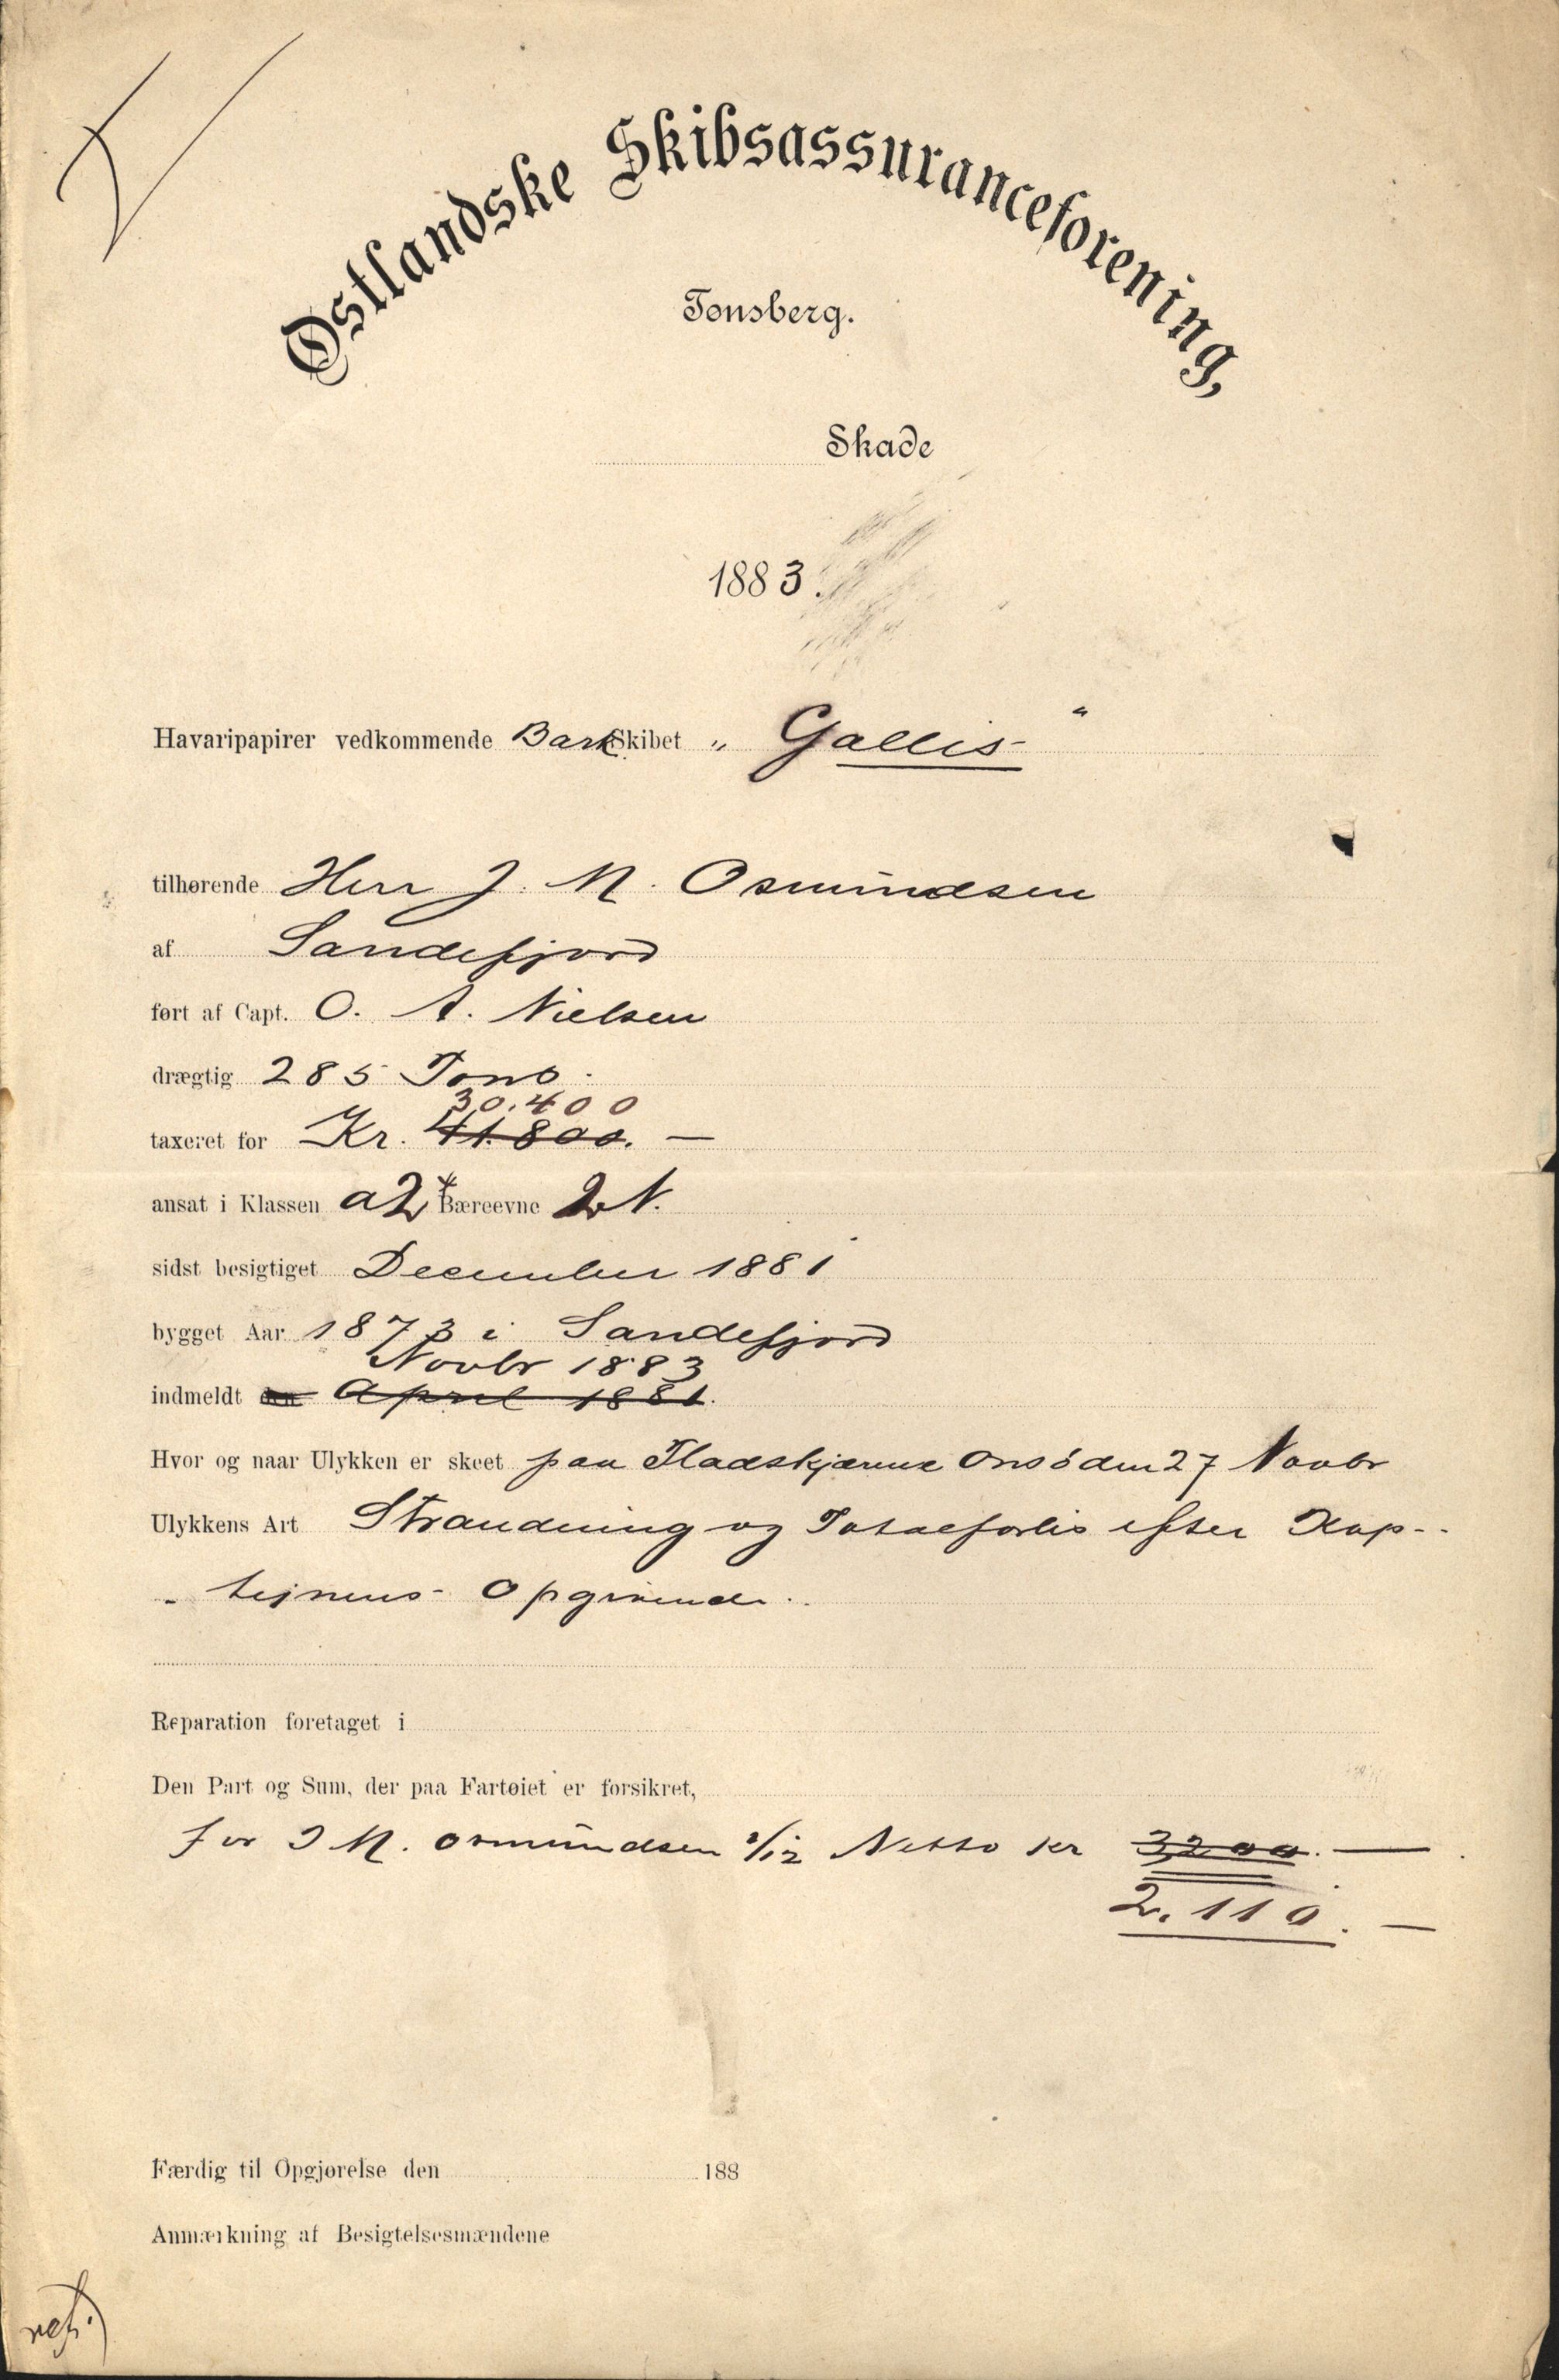 Østlandske Skibsassuranceforening,
Tønsberg.
Skade
1883.
Havaripapirer vedkommende Bark Skibet „ Gallis “
tilhørende Herr J. M. Osmundsen
af Sandefjord
ført af Capt. O. A. Nielsen
drægtig 285 Tons.
30.400
taxeret for Kr. 41.800. —
ansat i Klassen a2* Bæreevne 2 N.
sidst besigtiget December 1881
bygget Aar 1873 i Sandefjord
Novbr 1883
indmeldt den April 1881.
Hvor og naar Ulykken er skeet paa Fladskjærene Onsö den 27 Novbr
Ulykkens Art Strandning og Totalforlis efter Kap-
-tejnens Opgivende.
Reparation foretaget i
Den Part og Sum, der paa Fartøiet er forsikret,
for J M. Osmundsen 1/12 Netto kr 3200. —
2.110. —
Færdig til Opgjørelse den 188
Anmærkning af Besigtelsesmændene